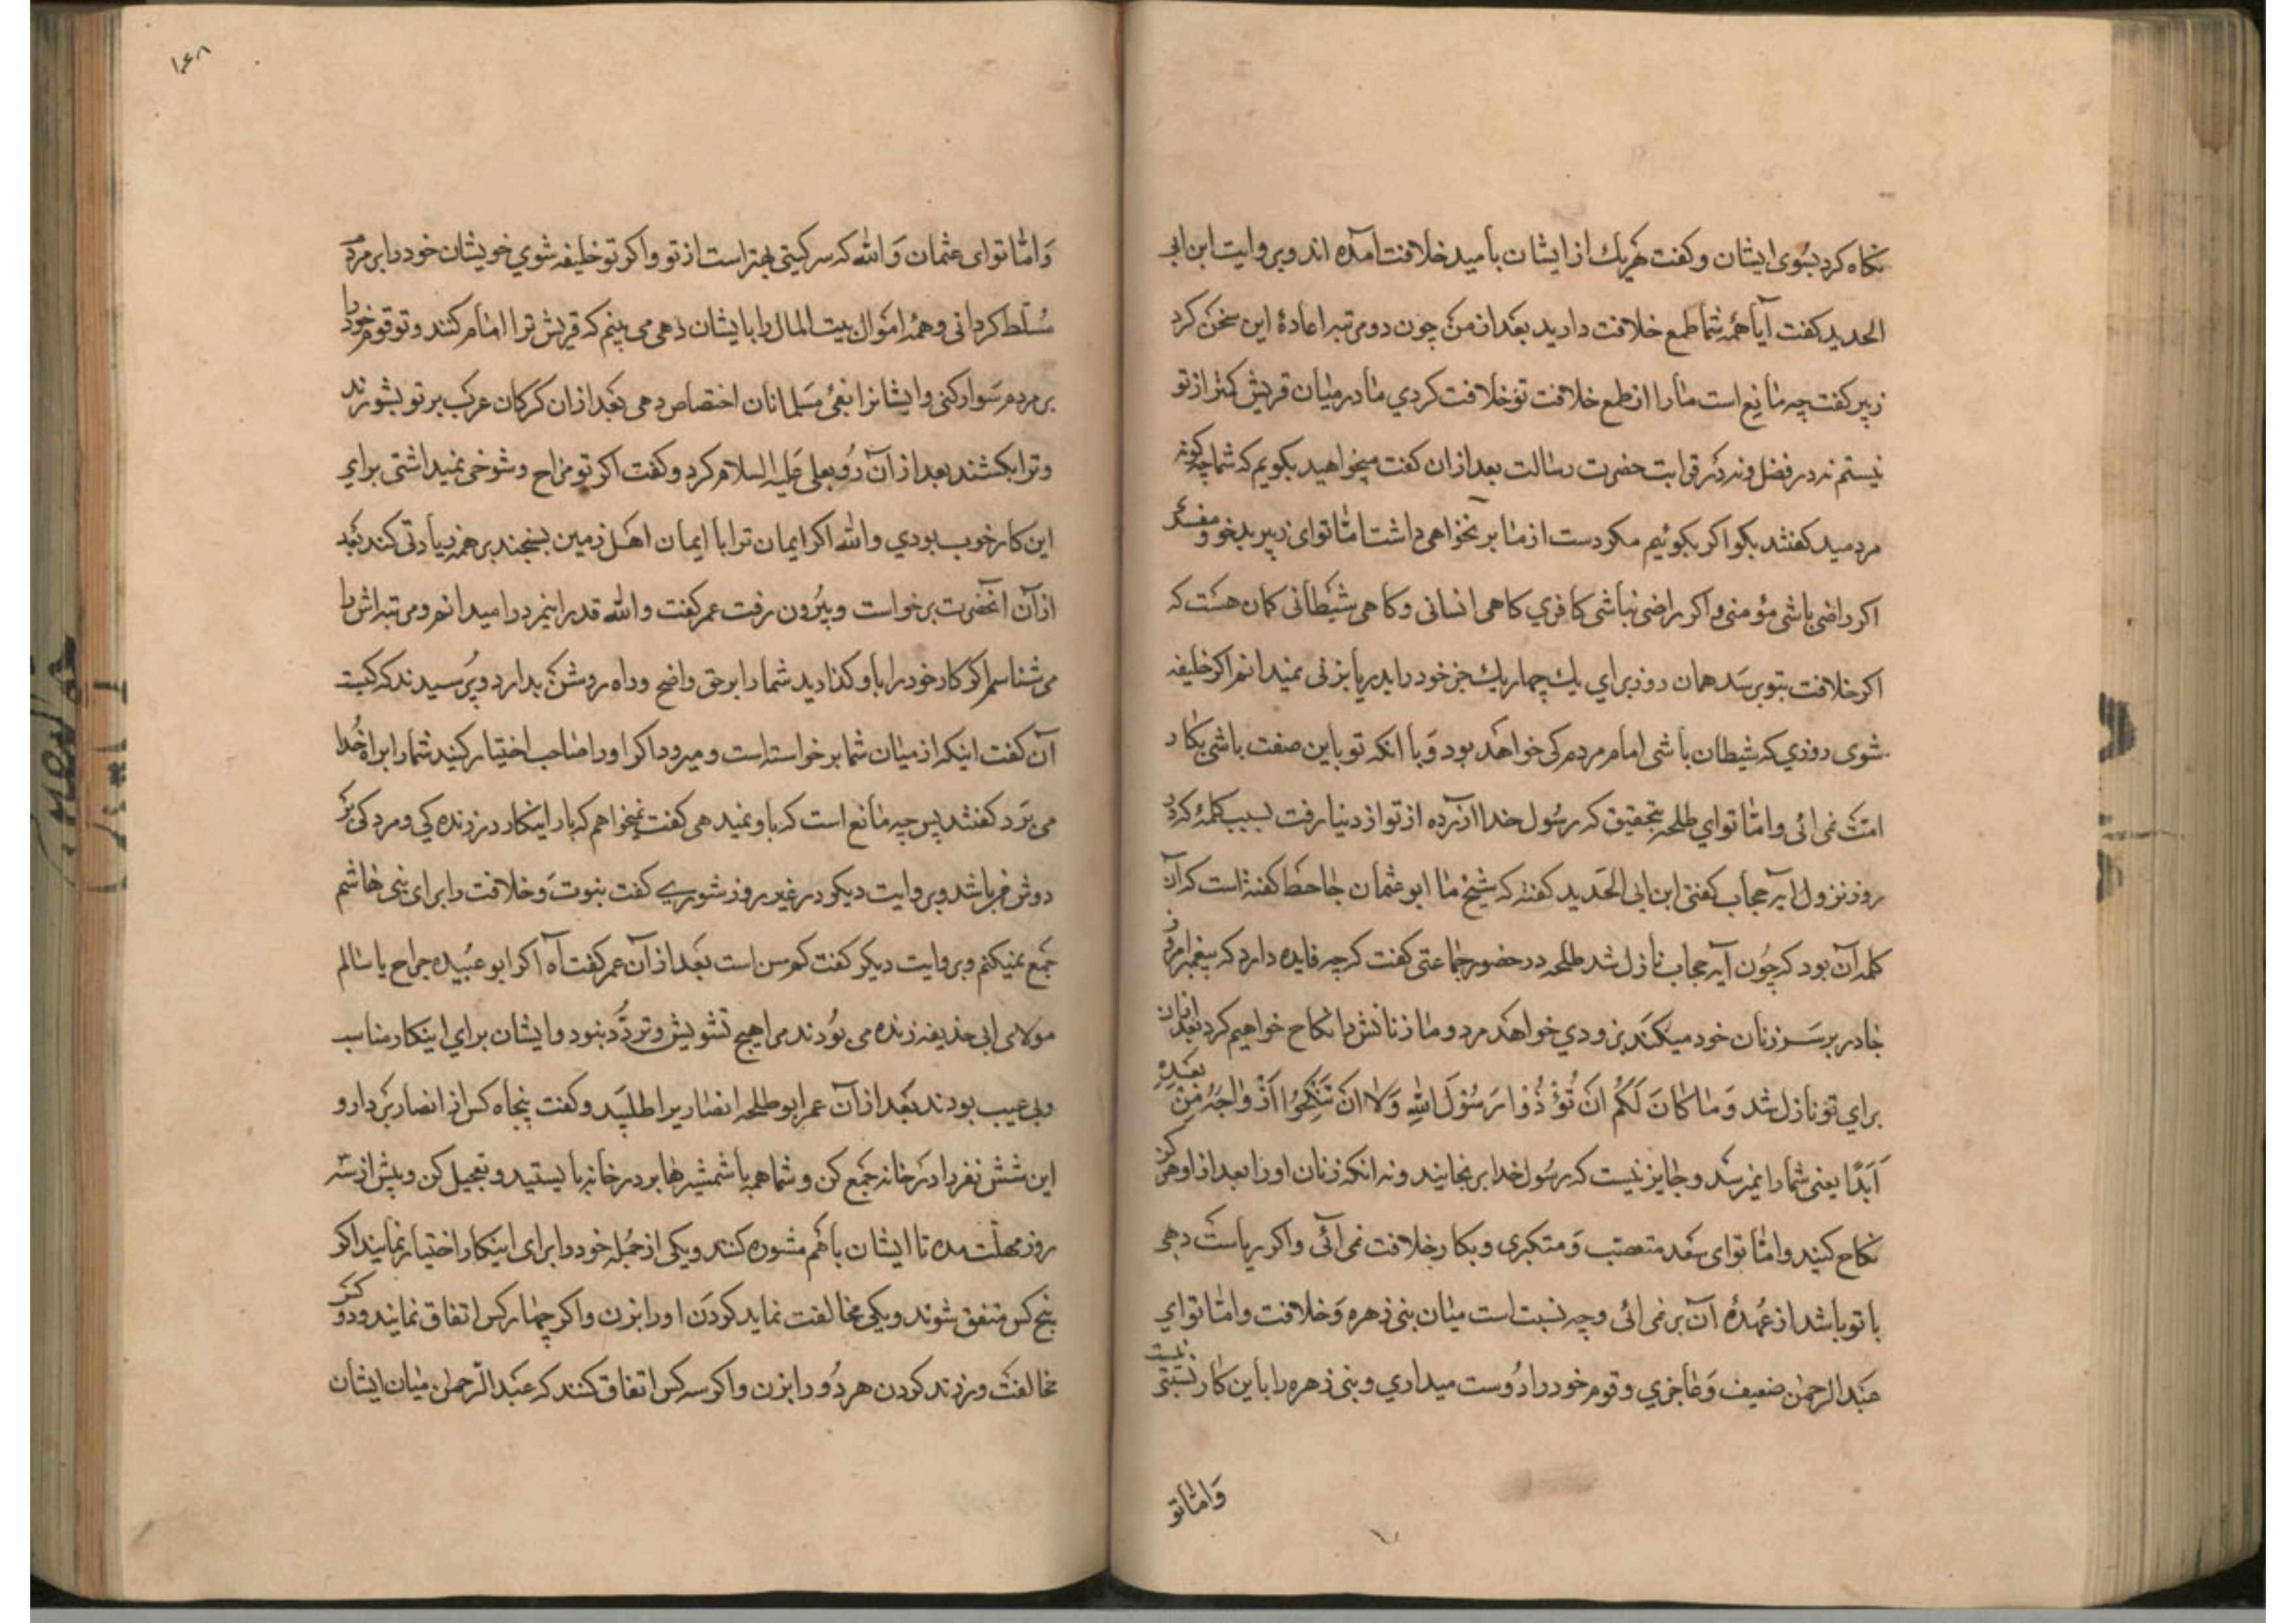 نكاه كرد بسوی ایشان و كفت هریك از ایشان بامید خلافت آمده اند و بروایت ابن ابی
الحدید كفت آیا همه شما طمع خلافت دارید بعد از من چون دو مرتبه اعادهٔ این سخن كرد
زبیر كفت چه مانع است ما را از طمع خلافت تو خلافت كردي ما در میان قریش كمتر از تو
نیستم نه در فضل و نه در قرابت حضرت رسالت بعد از ان كفت میخواهید بكویم كه شما چكونه
مردمید كفتند بكو اكر بكوئیم مكو دست از ما بر نخواهی داشت اما تو ای زبیر بدخو و مفسد
اكر راضی باشی مؤمنی و اكر راضی نباشی كافري كاهی انسانی و كاهی شیطانی كمان هست كه
اكر خلافت بتو برسد همان روز براي یك چهاریك جز خود را بدر یا بزنی نمیدانم اكر خلیفه
شوی روزي كه شیطان باشی امام مردم كی خواهد بود و با انكه تو باین صفت باشی بكار
امت نمی ائی و اما تو اي طلحه بتحقیق كه رسول خدا ازرده از تو از دنیا رفت بسبب كلمهٔ كه در
روز نزول ایه حجاب كفتی ابن ابی الحدید كفته كه شیخ ما ابو عثمان جاحظ كفته است كه آن
كلمه آن بود كه چون آیه حجاب نازل شد طلحه در حضور جماعتی كفت كه چه فایده دارد كه پیغمبر امروز
چادر بر سر زنان خود میكند بزودي خواهد مرد و ما زنانش را نكاح خواهیم كرد بعد از ان
براي تو نازل شد وَمَا كَانَ لَكُمْ اَنْ تُؤْذُوا رَسُوْلَ اللهِ وَلَا اَنْ تَنْكِحُوْا اَزْوَاجَهُ مِنْ بَعْدِهِ
اَبَدًا یعنی شما را نمیرسد و جایز نیست كه رسول خدا برنجانید و نه انكه زنان او را بعد از او هركز
نكاح كنید و اما تو ای سعد متعصب و متكبری و بكار خلافت نمی آئی و اكر ریاست دهی
با تو باشد از عهدهٔ آن بر نمی ائی و چه نسبت است میان بنی زهره و خلافت و اما تو اي
عبدالرحمن ضعیف و عاجزي و قوم خود را دوست میداري و بنی زهره را باین كار نسبتی نیست
و اما تو
١٤٨
و اما تو ای عثمان و الله كه سركیتی بهتر است از تو و اكر تو خلیفه شوي خویشان خود را بر مردم
مسلط كردانی و همه اموال بیت المال را بایشان دهی می بینم كه قریش ترا امام كنند و تو قوم خود را
بر مردم سوار كنی و ایشانرا بفیٔ مسلمانان اختصاص دهی بعد از ان كركان عرب بر تو بشورند
و ترا بكشند بعد از آن رو بعلی علیه السلام كرد و كفت اكر تو مزاح و شوخی نمیداشتی براي
این كار خوب بودي و الله اكر ایمان ترا با ایمان اهل زمین بسنجند بر همه زیادتی كند بعد
از آن انحضرت برخواست و بیرون رفت عمر كفت و الله قدر اینمرد را میدانم و مرتبه اش را
می شناسم اكر كار خود را باو كذارید شما را بر حق واضح و راه روشن بدارد و پرسیدند كه كیست
آن كفت اینكه از میان شما برخواسته است و میرود اكر او را صاحب اختیار كنید شما را براه خدا
می برد كفتند پس چه مانع است كه باو نمیدهی كفت نمیخواهم كه بار اینكار در زنده كی و مرده كی بر
دوش من باشد و بروایت دیكر در غیر روز شوری كفت نبوت و خلافت را برای بنی هاشم
جمع نمیكنم و بروایت دیكر كفت كم سن است بعد از آن عمر كفت آه اكر ابو عبیده جراح یا سالم
مولای ابی حذیفه زنده می بودند مرا هیچ تشویش و تردد نبود و ایشان براي اینكار مناسب
و بی عیب بودند بعد از آن عمر ابو طلحه انصاریرا طلبید و كفت پنجاه كس از انصار بردار و
این شش نفر را در خانه جمع كن و شما همه با شمشیرها بر در خانه بایستید و تعجیل كن و بیش از سه
روز مهلت مده تا ایشان با هم مشوره كنند و یكی از جمله خود را برای اینكار اختیار نمایند اكر
پنج كس متفق شوند و یكی مخالفت نماید كردن او را بزن و اكر چهار كس اتفاق نمایند و دو كس
مخالفت ورزند كردن هر دو را بزن و اكر سه كس اتفاق كنند كه عبد الرحمن میان ایشان